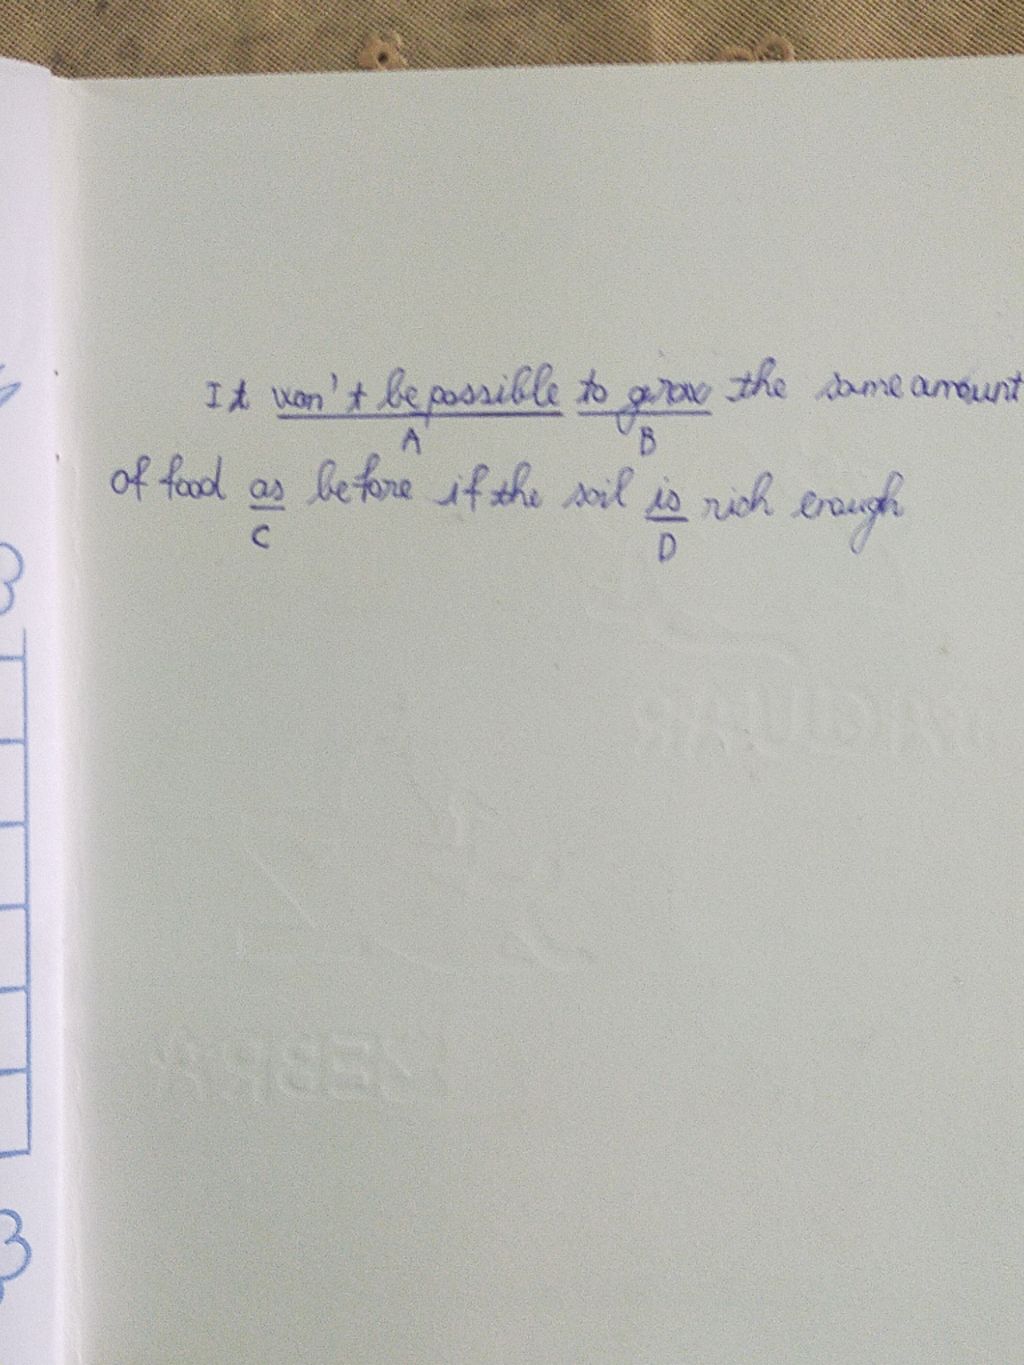 It won't be possible to grow the same amount
A B
of food as before if the soil is rich enough
C D